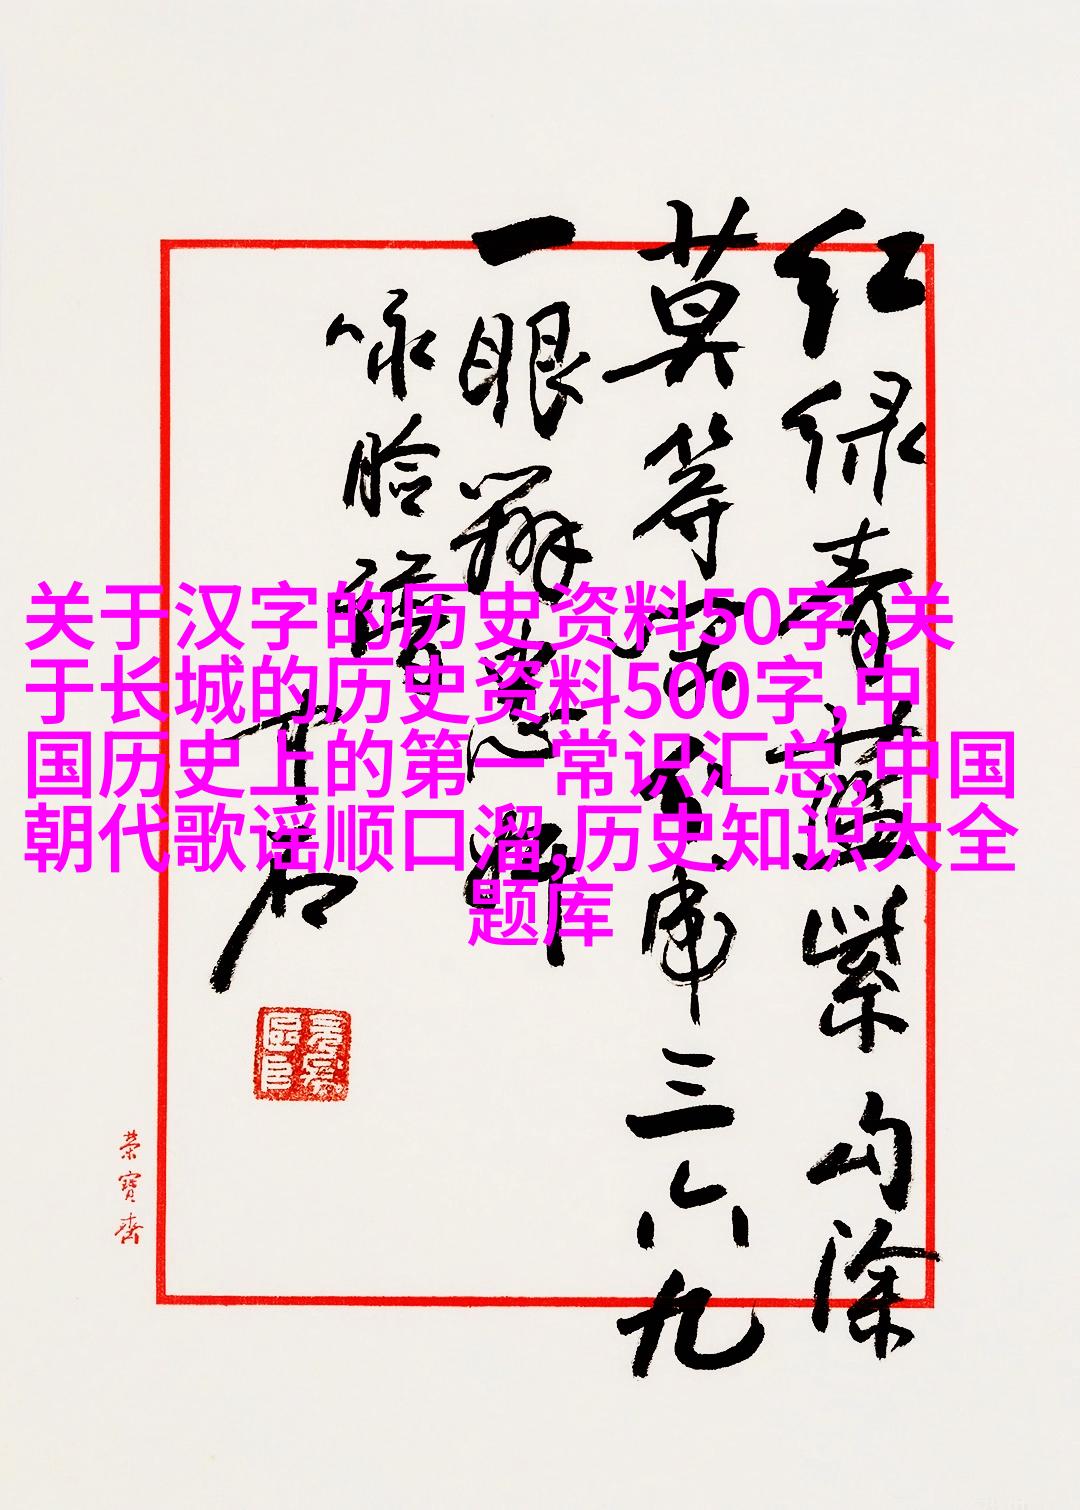 红绿青蓝紫勾涂
莫等三六九
一眼辨忠
咏脸谱
榮寶齋
关于汉字的历史资料50字,关
于长城的历史资料500字,中
国历史上的第一常识汇总,中国
朝代歌谣顺口溜,历史知识大全
题库